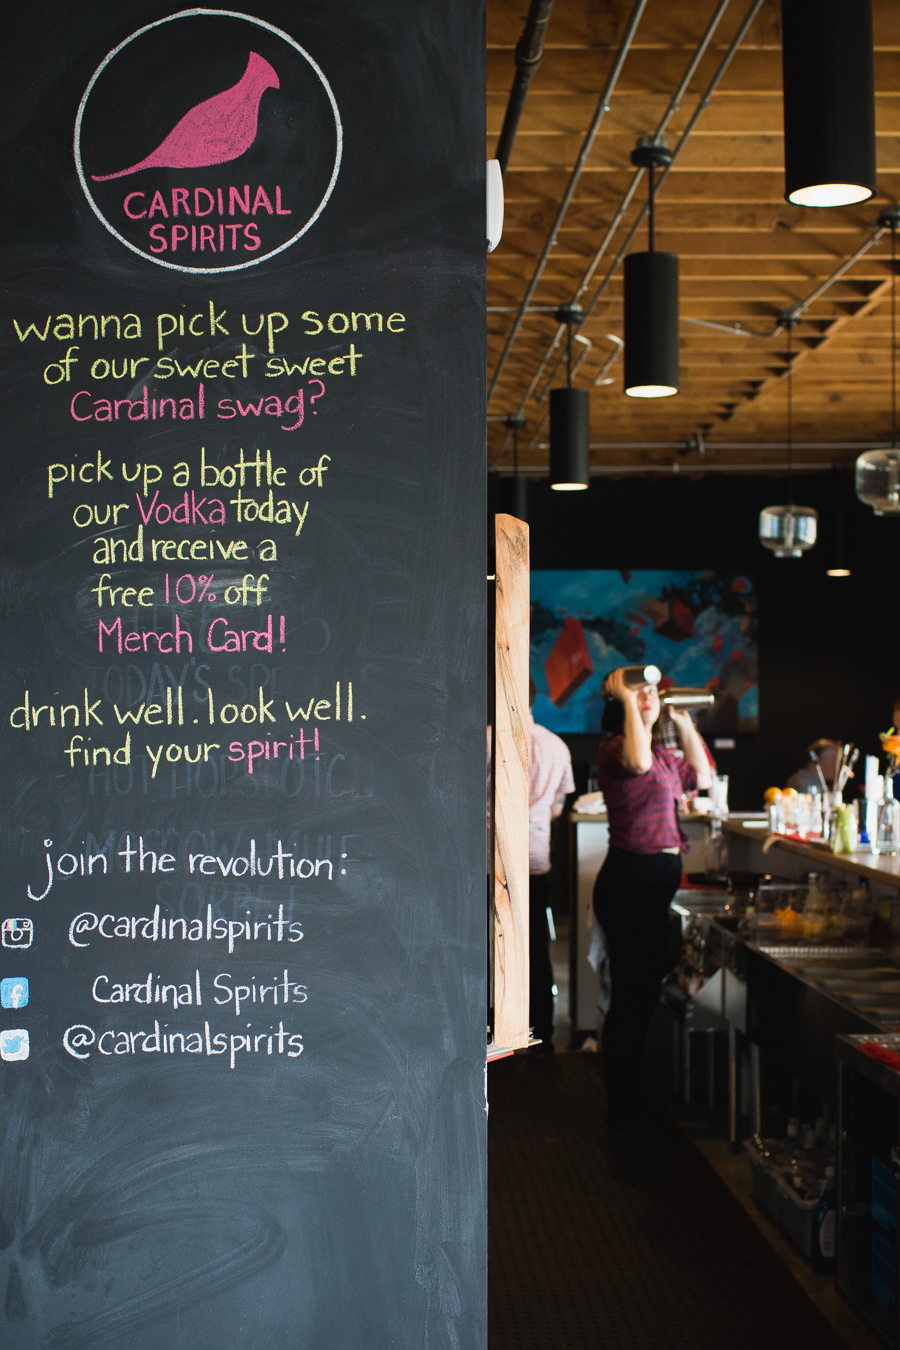 CARDINAL
SPIRITS
wanna pick up some
of our sweet sweet
Cardinal swag?
pick up a bottle of
our Vodka today
and receive a
free 10% off
Merch Card!
drink well. look well.
find your spirit!
join the revolution:
@cardinalspirits
Cardinal Spirits
@cardinalspirits